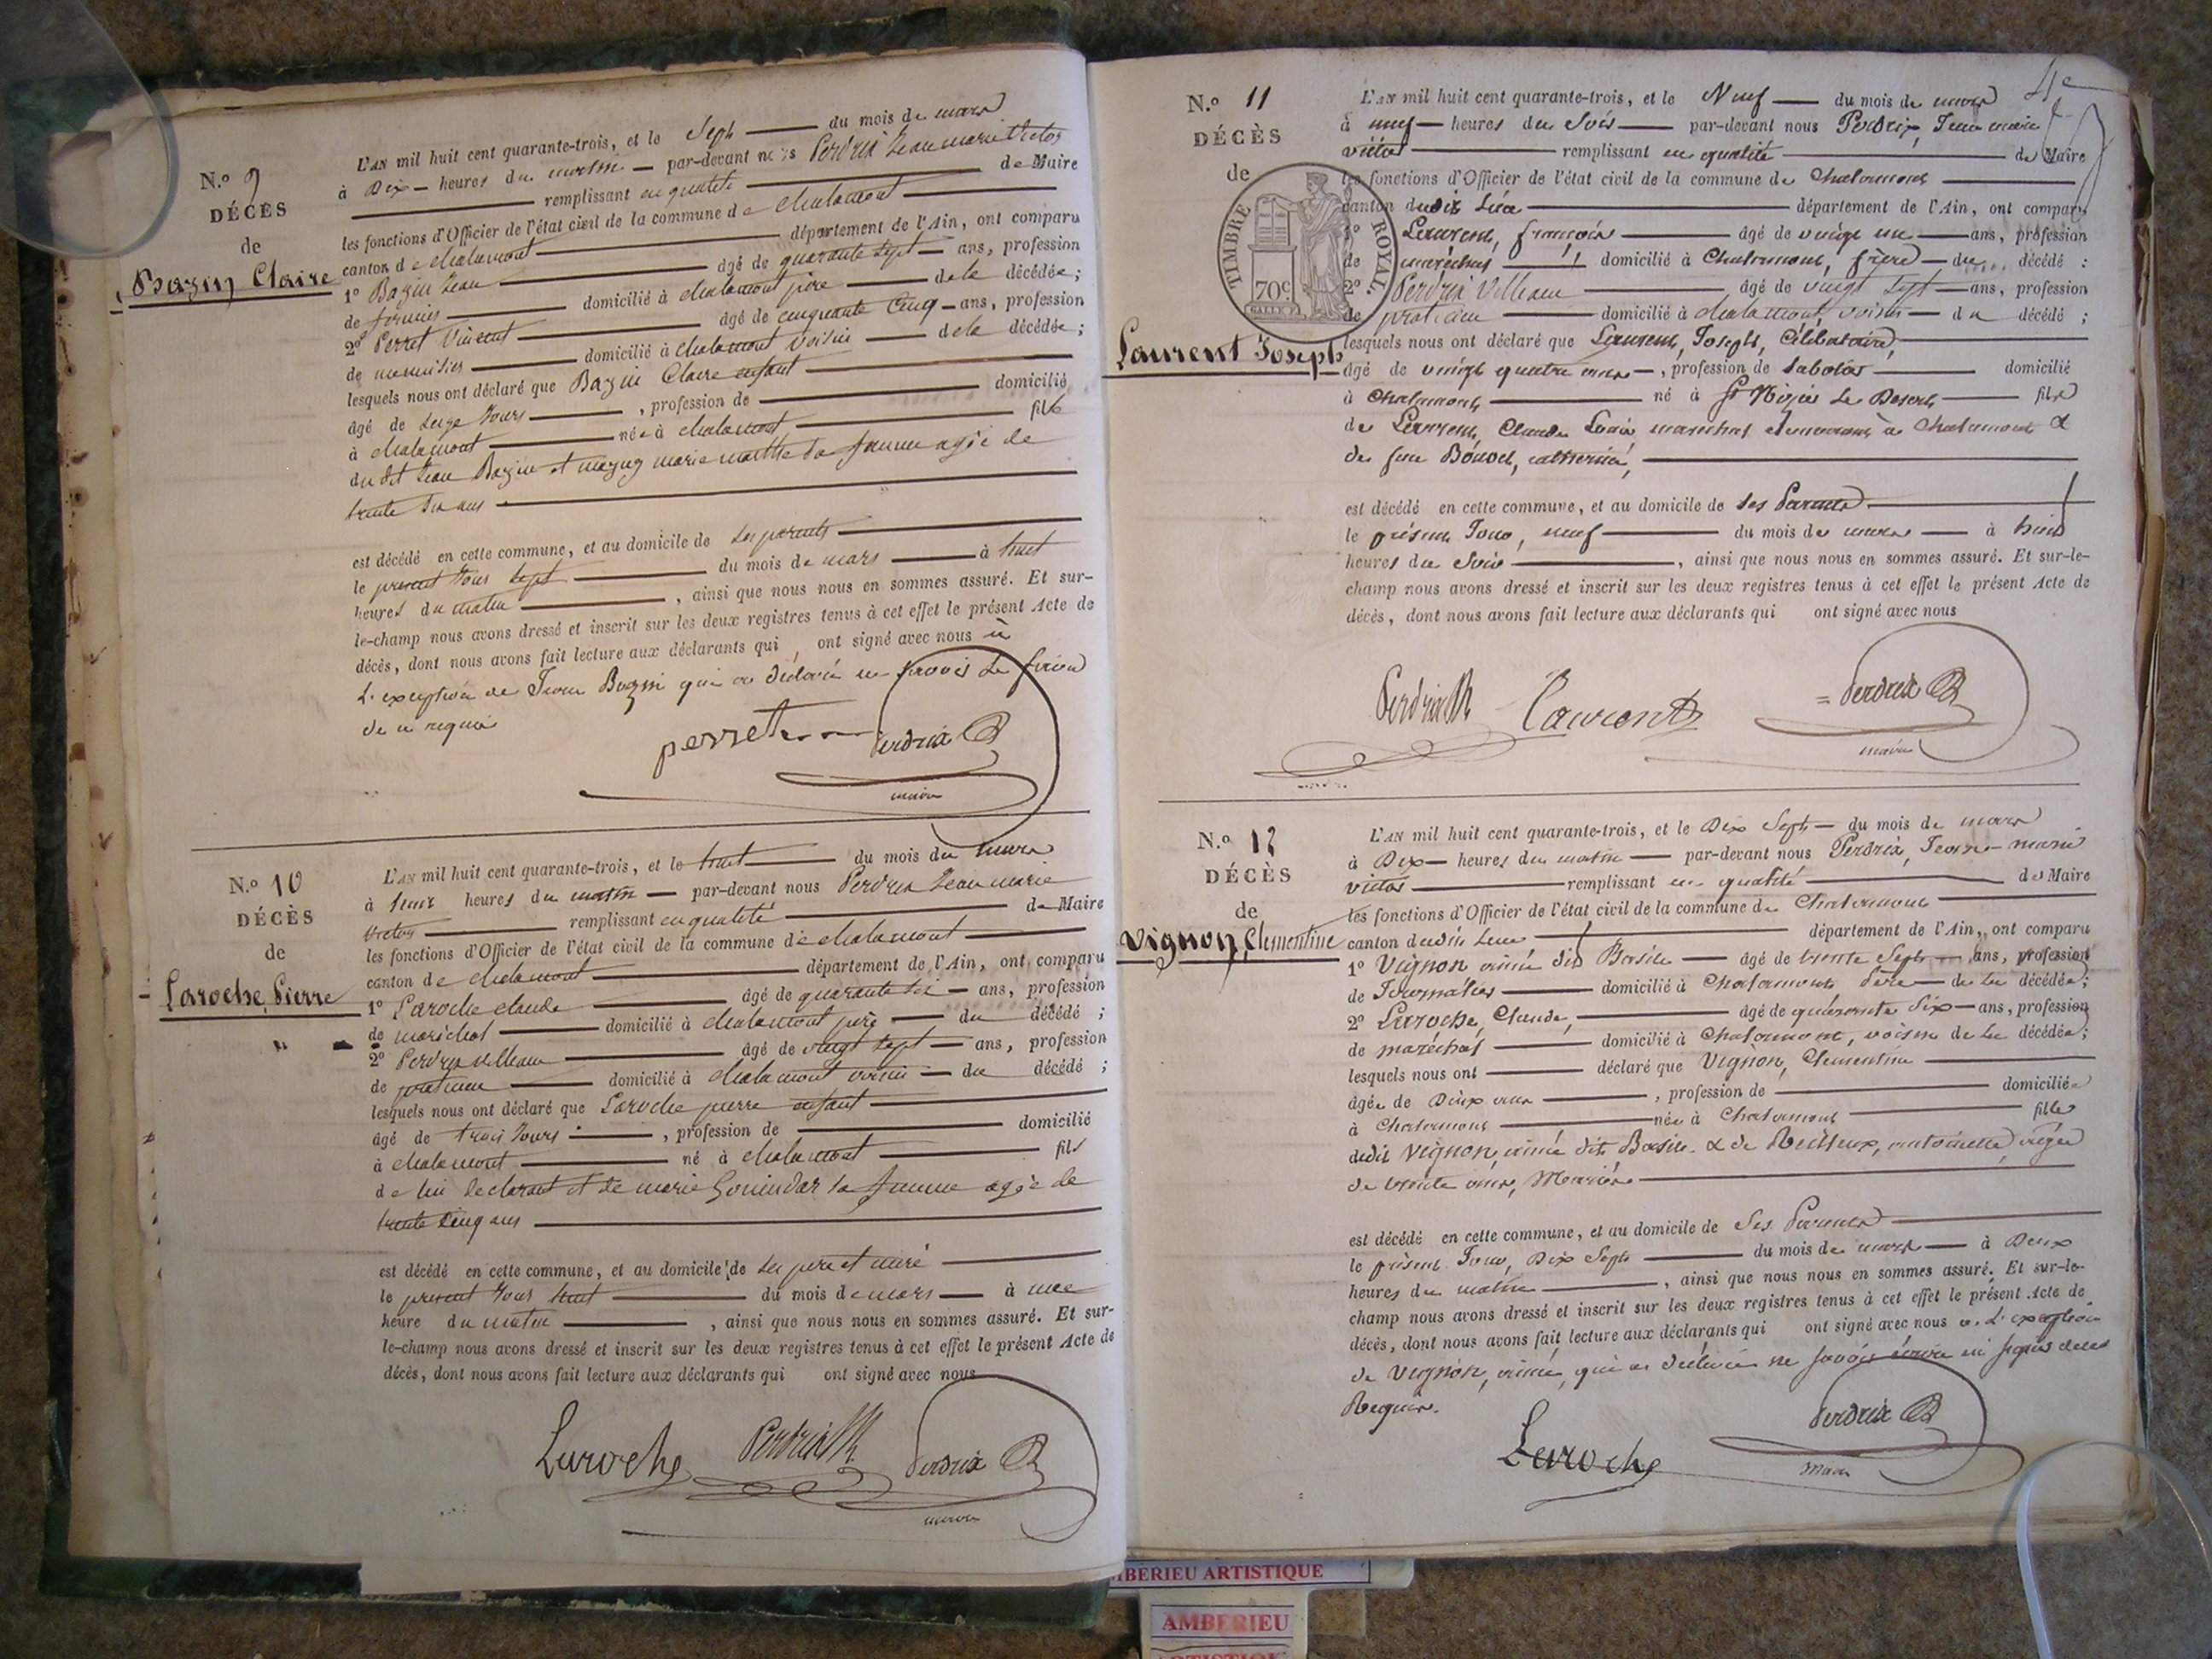 N.º 9
DÉCÈS
de
Bazin Claire
L'AN mil huit cent quarante-trois, et le Sept du mois de mars
à Dix heures du matin par-devant nous Perdrix Jean marie Victor
remplissant en qualité de Maire
les fonctions d'Officier de l'état civil de la commune de chalamont
canton de chalamont département de l'Ain, ont comparu
1º Bazin Jean âgé de quarante sept ans, profession
de fermier domicilié à chalamont père de la décédée ;
2º Perret Vincent âgé de cinquante cinq ans, profession
de menuisier domicilié à chalamont voisin de la décédée ;
lesquels nous ont déclaré que Bazin Claire enfant
âgé de seize jours , profession de domicilié
à chalamont née à chalamont fille
du dit Jean Bazin et marie marthe sa femme agée de
trente six ans
est décédé en cette commune, et au domicile de ses parents
le présent jour sept du mois de mars à huit
heures du matin , ainsi que nous nous en sommes assuré. Et sur-
le-champ nous avons dressé et inscrit sur les deux registres tenus à cet effet le présent Acte de
décès, dont nous avons fait lecture aux déclarants qui , ont signé avec nous à
L'exception de Jean Bazin qui a déclaré ne savoir le faire
de ce requis
perret Perdrix
maire
N.º 10
DÉCÈS
de
Laroche, Pierre
L'AN mil huit cent quarante-trois, et le huit du mois de mars
à heures du matin par-devant nous Perdrix Jean marie
Victor remplissant en qualité de Maire
les fonctions d'Officier de l'état civil de la commune de chalamont
canton de chalamont département de l'Ain, ont comparu
1º Laroche claude âgé de quarante six ans, profession
de maréchal domicilié à chalamont père du décédé ;
2º Perdrix William âgé de vingt sept ans, profession
de praticien domicilié à chalamont voisin du décédé ;
lesquels nous ont déclaré que Laroche pierre enfant
âgé de trois jours , profession de domicilié
à chalamont né à chalamont fils
de lui declarant et de marie sa femme agée de
trente cinq ans
est décédé en cette commune, et au domicile de ses père et mère
le présent jour huit du mois de mars à une
heure du matin , ainsi que nous nous en sommes assuré. Et sur-
le-champ nous avons dressé et inscrit sur les deux registres tenus à cet effet le présent Acte de
décès, dont nous avons fait lecture aux déclarants qui ont signé avec nous
Laroche Perdrix Perdrix
maire
4e
N.º 11
DÉCÈS
de
TIMBRE ROYAL
70c
Laurent Joseph
L'AN mil huit cent quarante-trois, et le Neuf du mois de mars
à neuf heures du Soir par-devant nous Perdrix, Jean marie
victor remplissant en qualité de Maire
les fonctions d'Officier de l'état civil de la commune de Chalamont
canton dudit Lieu département de l'Ain, ont comparu
1º Laurent, françois âgé de vingt un ans, profession
de maréchal domicilié à Chalamont, frère du décédé :
2º Perdrix William âgé de vingt sept ans, profession
de praticien domicilié à chalamont, voisin du décédé ;
lesquels nous ont déclaré que Laurent, Joseph, Célibataire,
âgé de vingt quatre ans , profession de Sabotier domicilié
à Chalamont né à St Nizier Le Desert fils
de Laurent, Claude Louis maréchal demeurant à Chalamont &
de feue catherine,
est décédé en cette commune, et au domicile de ses Parents
le présent Jour, neuf du mois de mars à huit
heures du Soir , ainsi que nous nous en sommes assuré. Et sur-le-
champ nous avons dressé et inscrit sur les deux registres tenus à cet effet le présent Acte de
décès, dont nous avons fait lecture aux déclarants qui ont signé avec nous
Perdrix Laurent Perdrix
maire
N.º 12
DÉCÈS
de
Vignon, Clementine
L'AN mil huit cent quarante-trois, et le Dix Sept du mois de mars
à Dix heures du matin par-devant nous Perdrix, Jean-marie
victor remplissant en qualité de Maire
les fonctions d'Officier de l'état civil de la commune de Chalamont
canton dudit Lieu département de l'Ain, ont comparu
1º Vignon aimé dit Basile âgé de trente Sept ans, profession
de Journalier domicilié à Chalamont Père de la décédée ;
2º Laroche, Claude, âgé de quarante six ans, profession
de maréchal domicilié à Chalamont, voisin de la décédée ;
lesquels nous ont déclaré que Vignon, Clementine
âgée de Deux ans , profession de domiciliée
à Chalamont née à Chalamont fille
dudit Vignon, aimé dit Basile & de antoinette, agée
de trente ans, Mariés
est décédé en cette commune, et au domicile de Ses Parents
le présent Jour, Dix Sept du mois de mars à Deux
heures du matin , ainsi que nous nous en sommes assuré. Et sur-le-
champ nous avons dressé et inscrit sur les deux registres tenus à cet effet le présent Acte de
décès, dont nous avons fait lecture aux déclarants qui ont signé avec nous à L'exception
de Vignon, aimé, qui a déclaré ne savoir écrire ni signer de ce
Requis.
Laroche Perdrix
maire
MBERIEU ARTISTIQUE
AMBERIEU
ARTISTIQUE